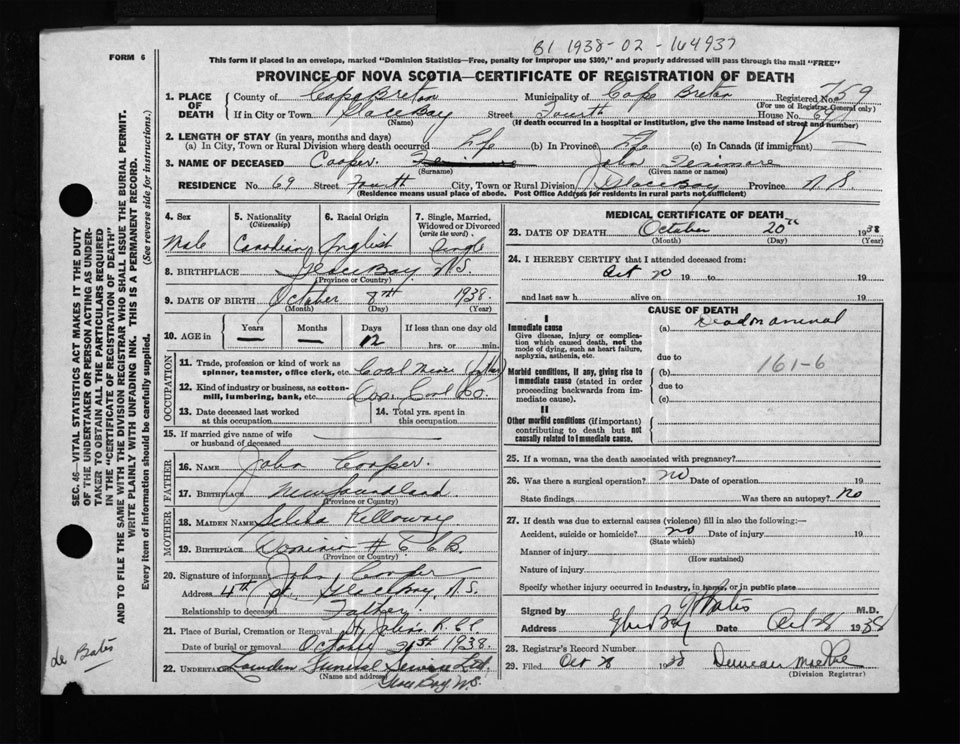 B1 1938-02-164937
FORM 6
This form if placed in an envelope, marked "Dominion Statistics—Free, penalty for improper use $300," and properly addressed will pass through the mail "FREE"
PROVINCE OF NOVA SCOTIA—CERTIFICATE OF REGISTRATION OF DEATH
1. PLACE OF DEATH County of Cape Breton Municipality of Cape Breton Registered No. 759
(For use of Registrar General only)
If in City or Town Glace Bay Street Fourth House No. 69
(Name) (If death occurred in a hospital or institution, give the name instead of street and number)
2. LENGTH OF STAY (in years, months and days)
(a) In City, Town or Rural Division where death occurred Life (b) In Province Life (c) In Canada (if immigrant) —
3. NAME OF DECEASED Cooper John
(Surname) (Given name or names)
RESIDENCE No. 69 Street Fourth City, Town or Rural Division Glace Bay Province N.S
(Residence means usual place of abode. Post Office Address for residents in rural parts not sufficient)
4. Sex Male
5. Nationality (Citizenship) Canadian
6. Racial Origin English
7. Single, Married, Widowed or Divorced (write the word) Single
8. BIRTHPLACE Glace Bay N.S.
(Province or Country)
9. DATE OF BIRTH October 8th 1938.
(Month) (Day) (Year)
10. AGE in Years — Months — Days 12 If less than one day old
hrs. or min.
OCCUPATION
11. Trade, profession or kind of work as spinner, teamster, office clerk, etc. Coal Miner (father)
12. Kind of industry or business, as cotton-mill, lumbering, bank, etc. Dom. Coal Co.
13. Date deceased last worked at this occupation
14. Total yrs. spent in this occupation
15. If married give name of wife or husband of deceased —
FATHER
16. NAME John Cooper.
17. BIRTHPLACE Newfoundland
(Province or Country)
MOTHER
18. MAIDEN NAME Selina Kelloway
19. BIRTHPLACE Dominion # 6 C.B.
(Province or Country)
20. Signature of informant John Cooper
Address 4th St. Glace Bay, N.S.
Relationship to deceased Father.
21. Place of Burial, Cremation or Removal St. John's
Date of burial or removal October 21st 1938.
22. UNDERTAKER Funeral Service Ltd.
(Name and address)
Glace Bay N.S.
MEDICAL CERTIFICATE OF DEATH
23. DATE OF DEATH October 20th 1938
(Month) (Day) (Year)
24. I HEREBY CERTIFY that I attended deceased from:
Oct 20 19 to 19
and last saw h alive on 19
CAUSE OF DEATH
I
Immediate cause
Give disease, injury or complication which caused death, not the mode of dying, such as heart failure, asphyxia, asthenia, etc.
(a) Dead on arrival
due to
Morbid conditions, if any, giving rise to immediate cause (stated in order proceeding backwards from immediate cause).
(b) 161-6
due to
(c)
II
Other morbid conditions (if important) contributing to death but not causally related to immediate cause.
25. If a woman, was the death associated with pregnancy?
26. Was there a surgical operation? no Date of operation 19
State findings Was there an autopsy? No
27. If death was due to external causes (violence) fill in also the following:—
Accident, suicide or homicide? no Date of injury 19
(State which)
Manner of injury
(How sustained)
Nature of injury
Specify whether injury occurred in industry, in home, or in public place
Signed by Bates M.D.
Address Glace Bay Date Oct 28 1938
28. Registrar's Record Number
29. Filed Oct 28 1938 Duncan
(Division Registrar)
SEC. 46—VITAL STATISTICS ACT MAKES IT THE DUTY OF THE UNDERTAKER OR PERSON ACTING AS UNDERTAKER TO OBTAIN ALL THE PARTICULARS REQUIRED IN THE "CERTIFICATE OF REGISTRATION OF DEATH"
AND TO FILE THE SAME WITH THE DIVISION REGISTRAR WHO SHALL ISSUE THE BURIAL PERMIT.
WRITE PLAINLY WITH UNFADING INK. THIS IS A PERMANENT RECORD.
Every item of information should be carefully supplied. (See reverse side for instructions.)
Bates